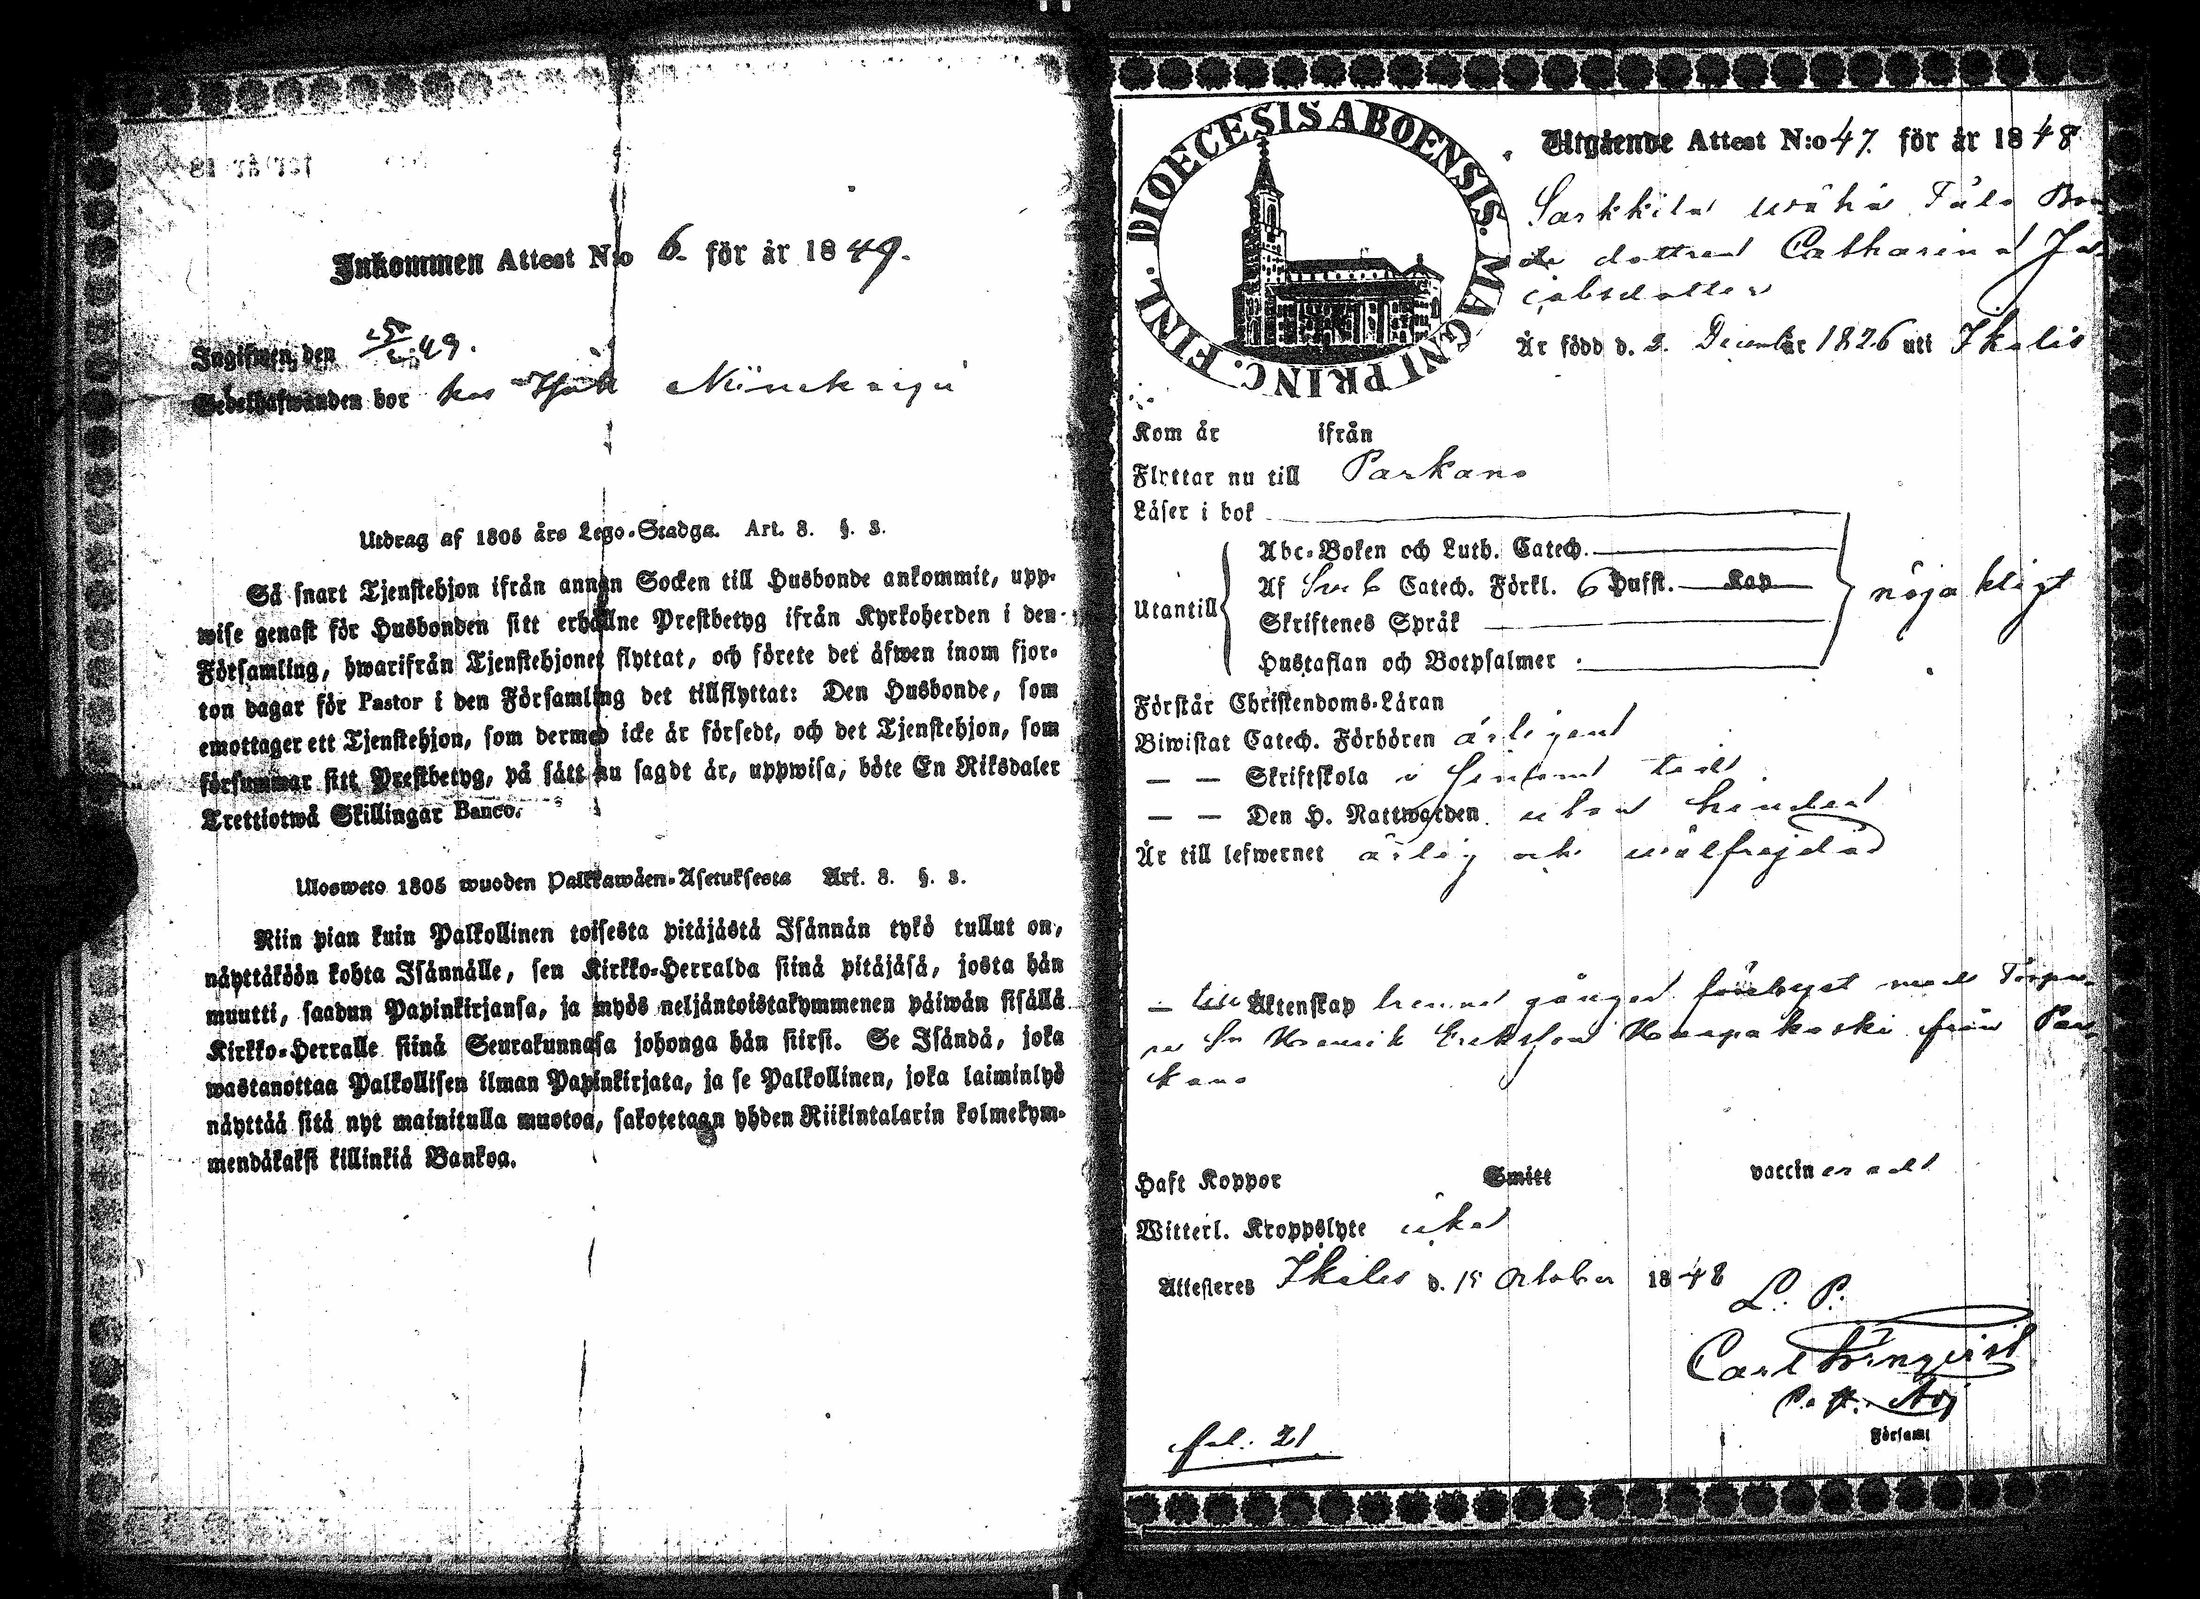 Inkommen Attest N:o 6. för år 1849.
Ingifwen den 49.
Bedelhafwanden bor hos
Utdrag af 1805 års Lego-Stadga. Art. 8. §. 3.
Så snart Tjenstehjon ifrån annan Socken till Husbonde ankommit, upp-
wise genast för Husbonden sitt erhållne Prestbetyg ifrån Kyrkoherden i den
Församling, hwarifrån Tjenstehjonet flyttat, och förete det äfwen inom fjor-
ton dagar för Pastor i den Församling det tillflyttat: Den Husbonde, som
emottager ett Tjenstehjon, som dermed icke är försedt, och det Tjenstehjon, som
försummar sitt Prestbetyg, på sätt nu sagdt är, uppwisa, böte En Riksdaler
Trettiotwå Skillingar Banco.
Ulosweto 1805 wuoden Palkkawäen-Asetuksesta Art. 8. §. 3.
Niin pian kuin Palkollinen toisesta pitäjästä Isännän tykö tullut on,
näyttäköön kohta Isännälle, sen Kirkko-Herralda siinä pitäjäsä, josta hän
muutti, saadun Papinkirjansa, ja myös neljäntoistakymmenen päiwän sisällä
Kirkko-Herralle siinä Seurakunnasa johonga hän siirsi. Se Isändä, joka
wastanottaa Palkollisen ilman Papinkirjata, ja se Palkollinen, joka laiminlyö
näyttää sitä nyt mainitulla muotoa, sakotetaan yhden Riikintalarin kolmekym-
mendäkaksi killinkiä Bankoa.
DIOECESIS ABOENSIS. MAGNI PRINC. FINL.
Utgående Attest N:o 47. för år 1848
Sarkkila wähä Tälo Bon
de dottren Catharina Ja
cobsdotter
Är född d. 2. December 1826 uti Ikalis
Kom år ifrån
Flyttar nu till Parkano
Läser i bok
Abc-Boken och Luth. Catech.
Utantill Af Sveb Catech. Förkl. 6 Hufst. Kap nöjaktigt
Skriftenes Språk
Hustaflan och Botpsalmer
Förstår Christendoms-Läran
Biwistat Catech. Förhören årligen
— — Skriftskola i tid
— — Den H. Nattwarden utan hinder
Är till lefwernet ärlig och wälfrejdad
— till Äktenskap henne gånger med Torpa-
re Sn Henrik Eriksson från Par
kano
Haft Koppor Smitt vaccinerad
Witterl. Kroppslyte utan
Attesteras Ikalis d. 15 October 1848
L. P.
Carl
Församl
fol. 21